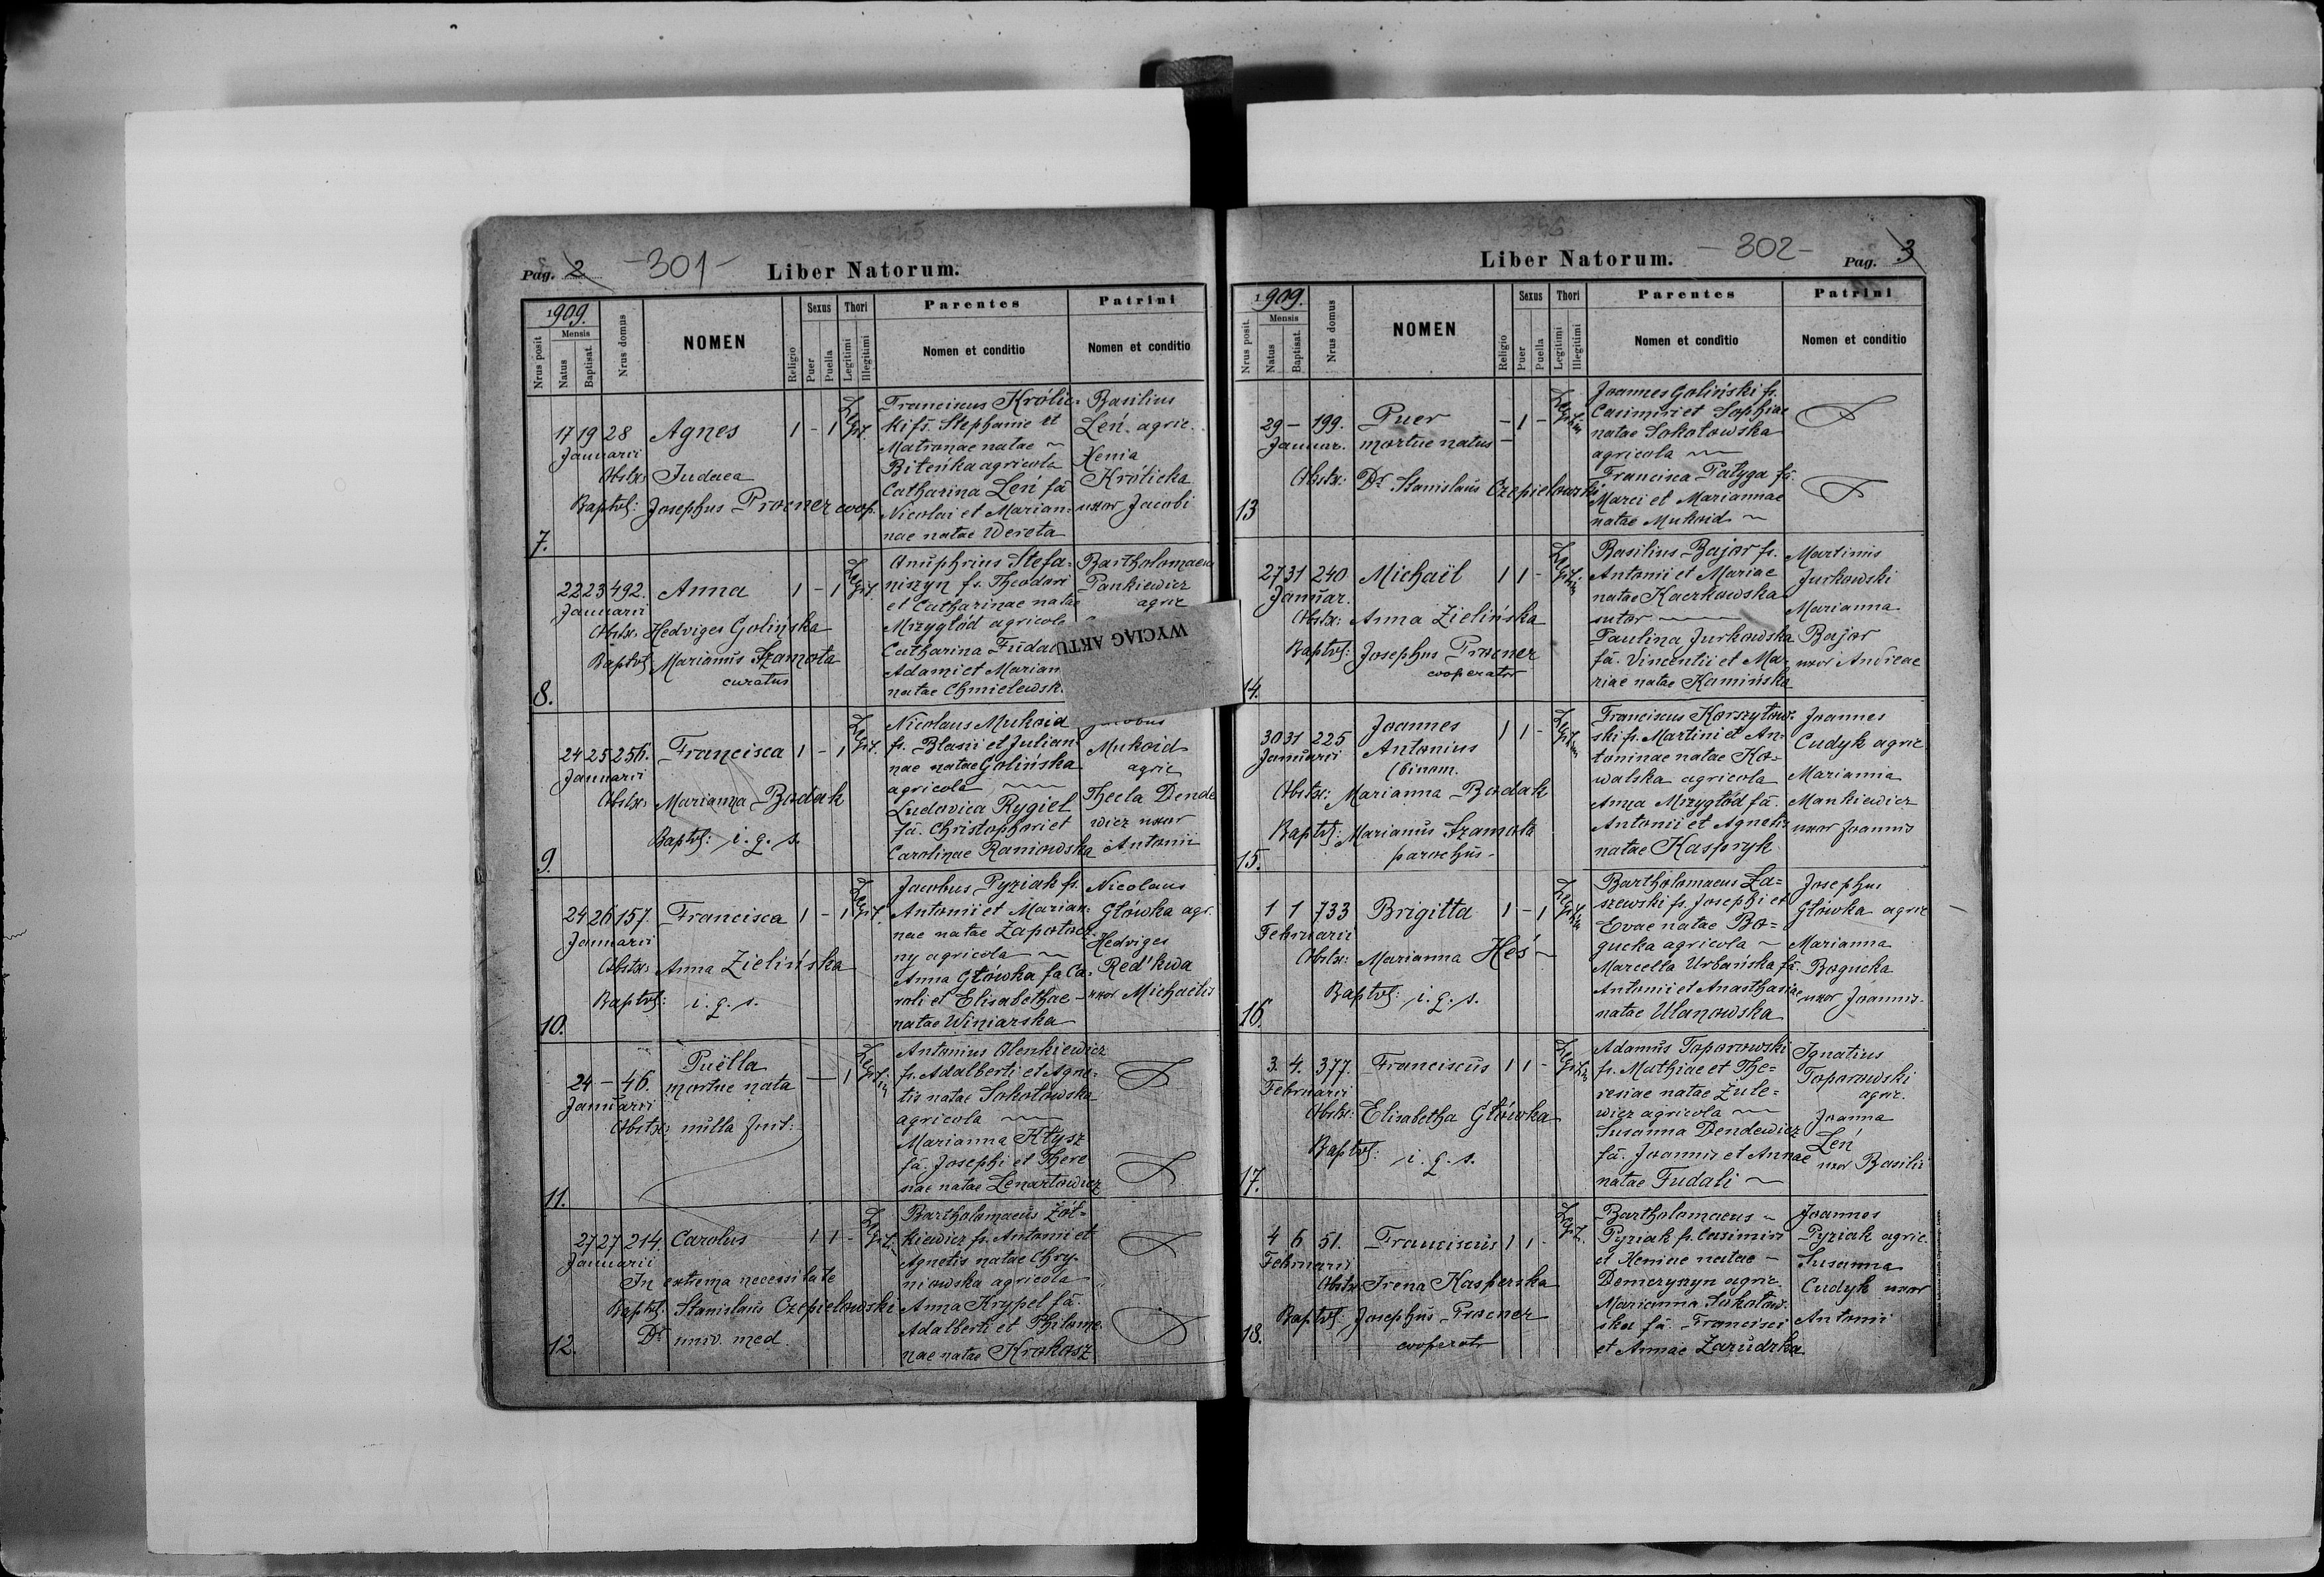 Pag. 2
-301-
Liber Natorum.
1909.
Nrus posit
Mensis
Natus
Baptisat.
Nrus domus
NOMEN
Religio
Sexus
Puer
Puella
Thori
Legitimi
Illegitimi
Parentes
Nomen et conditio
Patrini
Nomen et conditio
7.
17 19 28 Agnes 1 - 1 Legit.
Januarii
Obstx: Judaea
Baptvt: Josephus Procner coop.
Franciscus Królic-
ki fs. Stephanie et
Matronae natae ~
Biteńka agricola
Catharina Leń fa
Nicolai et Marian-
nae natae Wereta
Basilius
Leń. agric.
Xenia
Królicka
uxor Jacobi
8.
22 23 492. Anna 1 - 1 Legit.
Januarii
Obstx: Hedviges Golińska
Baptvt: Marianus Szamota
curatus
Onuphrius Stefa-
niszyn fs. Theodori
et Catharinae natae
Mrzygłód agricola
Catharina Fuda
Adami et Marian
natae Chmielewsk.
Bartholomaeus
Pankiewicz
agric
WYCIĄG AKTU
9.
24 25 256. Francisca 1 - 1 Legit.
Januarii
Obstx: Marianna Bodak
Baptvt: i. q. s.
Nicolaus Mukoid
fs. Blasii et Julian-
nae natae Golińska
agricola
Ludovica Rygiel
fa. Christophori et
Carolinae Raniowska
Jacobus
Mukoid
agric
Thecla Dende
wicz uxor
Antonii
10.
24 26 157. Francisca 1 - 1 Legit.
Januarii
Obstx: Anna Zielińska
Baptvt: i. q. s.
Jacobus Pyziak fs.
Antonii et Marian-
nae natae Zapotocz
ny agricola ~
Anna Główka fa Ca-
roli et Elisabethae -
natae Winiarska
Nicolaus
Główka agr.
Hedviges
Red'kwa
uxor Michaelis
11.
24 - 46. Puella
mortue nata - 1 Legitim
Januarii
Obstx: nulla fuit:
Antonius Olenkiewicz
fs. Adalberti et Agne-
tis natae Sokołowska
agricola
Marianna Kłysz
fa. Josephi et There
siae natae Lenartowicz
12.
27 27 214. Carolus 1 1 - Legit.
Januarii
In extrema necessitate
Baptvt. Stanislaus Czepielowski
Dr univ. med.
Bartholomaeus Żół-
kiewicz fs. Antonii et
Agnetis natae Chry-
niowska agricola
Anna Krypel fa.
Adalberti et Philome-
nae natae Krokosz
Liber Natorum.
-302-
Pag. 3
1909.
Nrus posit.
Mensis
Natus
Baptisat.
Nrus domus
NOMEN
Religio
Sexus
Puer
Puella
Thori
Legitimi
Illegitimi
Parentes
Nomen et conditio
Patrini
Nomen et conditio
13
29 - 199. Puer - 1 - Legitim
Januar. mortue natus -
Obstx: Dr Stanislaus Czepielowski
Joannes Goliński fs.
Casimiri et Sophiae
natae Sokołowska
agricola
Francisca Patyga fa.
Marci et Mariannae
natae Mukoid ~
14.
27 31 240 Michaël 1 1 - Legitim
Januar.
Obstx: Anna Zielińska
Baptvt: Josephus Procner
cooperator
Basilius Bajor fs.
Antonii et Mariae
natae Kaczkowska
sutor
Paulina Jurkowska
fa. Vincentii et Ma-
riae natae Kamińska
Martinus
Jurkowski
Marianna
Bajor
uxor Andreae
15.
30 31 225 Joannes 1 1 - Legitim
Januarii Antonius
(binom.
Obstx: Marianna Bodak
Baptvt: Marianus Szamota
parochus -
Franciscus Korszyłow-
ski fs. Martini et An-
toninae natae Ko-
walska agricola
Anna Mrzygłód fa.
Antonii et Agnetis
natae Kaspryk
Joannes
Cudyk agric
Marianna
Mankiewicz
uxor Joannis
16.
1 1 733 Brigitta 1 - 1 Legitim
Februarii
Obstx: Marianna Heś ~
Baptvt: i. q. s.
Bartholomaeus Za-
szewski fs. Josephi et
Evae natae Bo-
gucka agricola ~
Marcella Urbańska fa.
Antonii et Anasthasiae
natae Ulanowska
Josephus
Główka agric
Marianna
Bogucka
uxor Joannis.
17.
3. 4. 377. Franciscus 1 1 - Legitim
Februarii
Obstx: Elisabetha Główka
Baptvt: i. q. s.
Adamus Toporowski
fs. Mathiae et The-
resiae natae Zule-
wicz agricola
Susanna Dendewicz
fa. Joannis et Annae
natae Fudali ~
Ignatius
Toporowski
agric.
Joanna
Leń
uxor Basilii
18.
4 6 51. Franciscus 1 1 - Legit.
Februarii
Obstx: Irena Kasperska
Baptvt: Josephus Procner
cooperator
Bartholomaeus ~
Pyziak fs. Casimiri
et Xeniae natae -
Demczyszyn agric.
Marianna Sokołow-
ska fa. Francisci
et Annae Zarudzka
Joannes
Pyziak agric.
Susanna
Cudyk uxor
Antonii